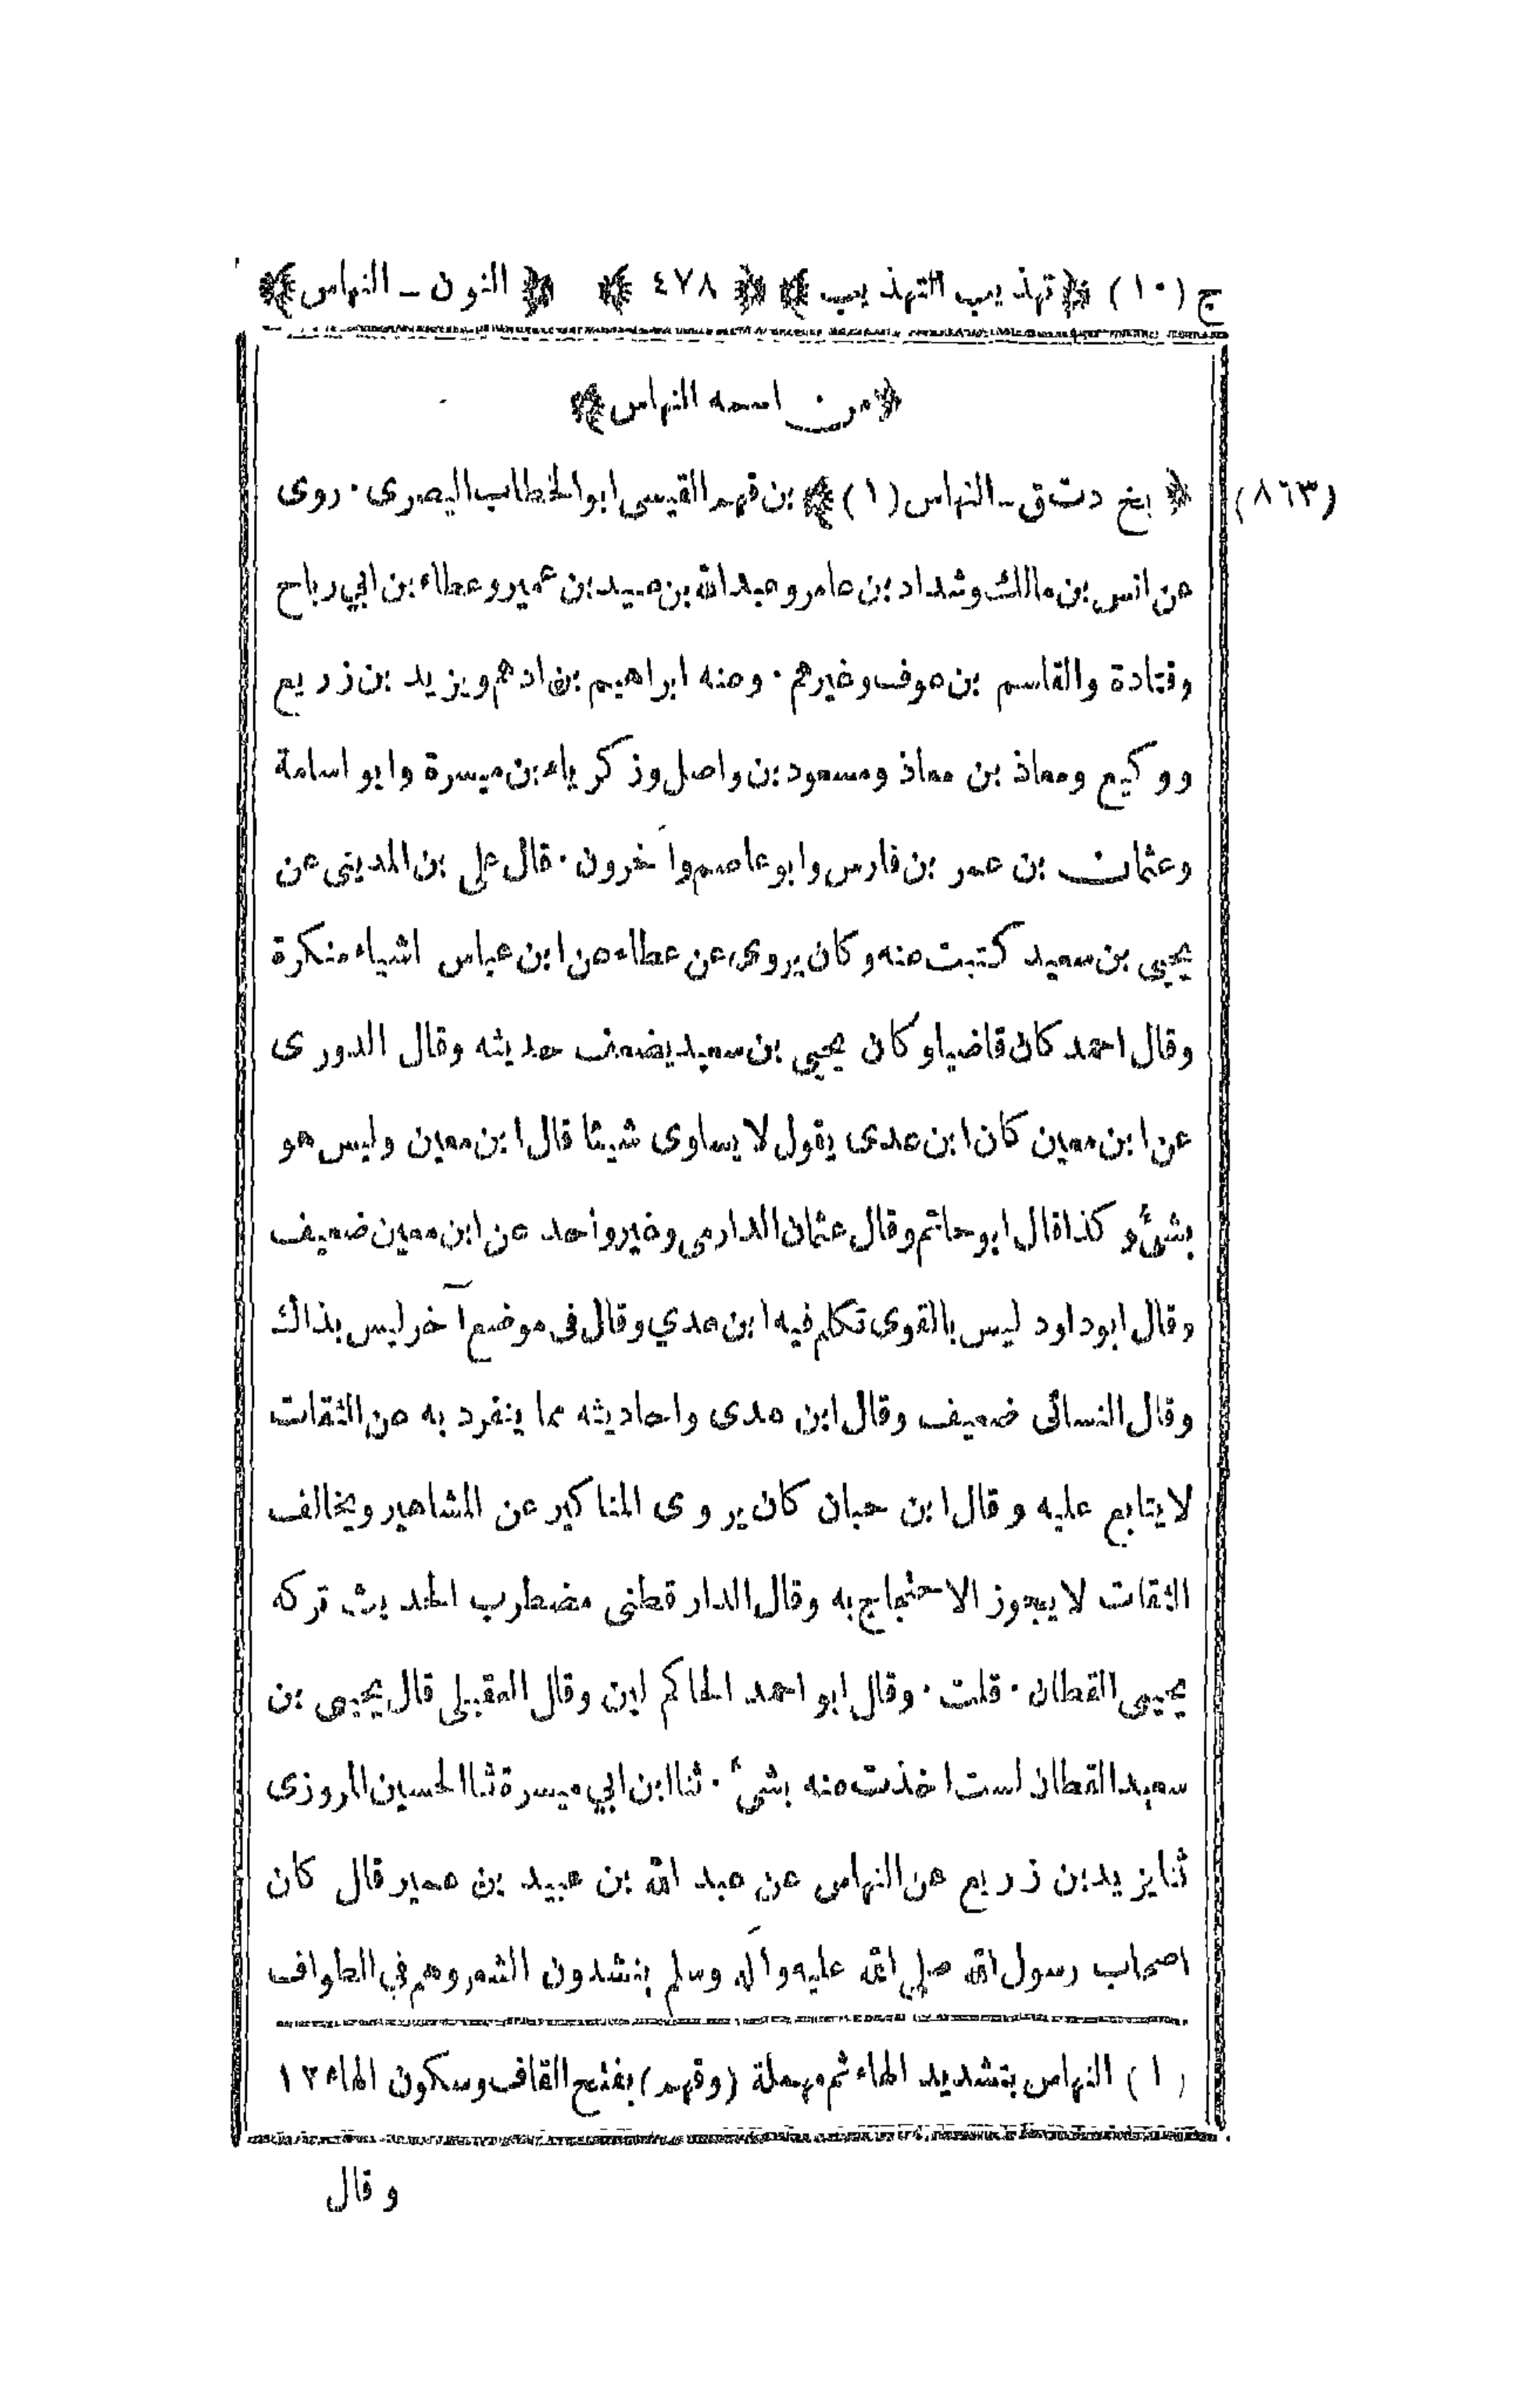 ج (١٠) ﴿ تهذيب التهذيب ﴾ ﴿ ٤٧٨ ﴾ ﴿ النون ــ النهاس ﴾
﴿ من اسمه النهاس ﴾
(٨٦٣) ﴿ بخ دت ق ــ النهاس (١) ﴾ بن قهم القيسى ابو الخطاب البصرى ٠ روى
عن انس بن مالك وشداد بن عامر وعبد الله بن عبيد بن عمير وعطاء بن ابي رباح
وقتادة والقاسم بن عوف وغيرهم ٠ وعنه ابراهيم بن ادهم ويزيد بن زريع
ووكيع ومعاذ بن معاذ ومسعود بن واصل وزكرياء بن ميسرة وابو اسامة
وعثمان بن عمر بن فارس وابو عاصم وآخرون ٠ قال على بن المدينى عن
يحيى بن سعيد كتبت عنه وكان يروى عن عطاء عن ابن عباس اشياء منكرة
وقال احمد كان قاضيا وكان يحيى بن سعيد يضعف حديثه وقال الدورى
عن ابن معين كان ابن عدى يقول لا يساوى شيئا قال ابن معين وليس هو
بشئ وكذا قال ابو حاتم وقال عثمان الدارمى وغير واحد عن ابن معين ضعيف
وقال ابو داود ليس بالقوى تكلم فيه ابن عدي وقال فى موضع آخر ليس بذاك
وقال النسائى ضعيف وقال ابن عدى واحاديثه مما ينفرد به عن الثقات
لا يتابع عليه وقال ابن حبان كان يروى المناكير عن المشاهير ويخالف
الثقات لا يجوز الاحتجاج به وقال الدار قطنى مضطرب الحديث تركه
يحيى القطان ٠ قلت ٠ وقال ابو احمد الحاكم لين وقال العقيلى قال يحيى بن
سعيد القطان لست اخذت منه بشئ ٠ ثنا ابن ابي ميسرة ثنا الحسين المروزى
ثنا يزيد بن زريع عن النهاس عن عبد الله بن عبيد بن عمير قال كان
اصحاب رسول الله صلى الله عليه وآله وسلم ينشدون الشعر وهم في الطواف
(١) النهاس بتشديد الهاء ثم مهملة (وقهم) بفتح القاف وسكون الهاء ١٢
وقال